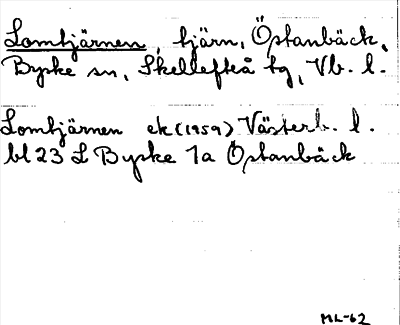 Lomtjärnen, tjärn, Östanbäck,
Byske sn, Skellefteå tg, Vb. l.
Lomtjärnen ek (1959) Västerb. l.
bl 23 L Byske 1a Östanbäck
ML-62